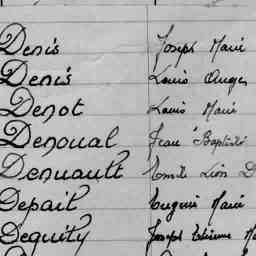 Denis Joseph Marie
Denis Louis Ange
Denot Louis Marie
Denoual Jean Baptiste
Denuault Emile Léon D
Depail Eugène Marie
Dequity Joseph Etienne Ma